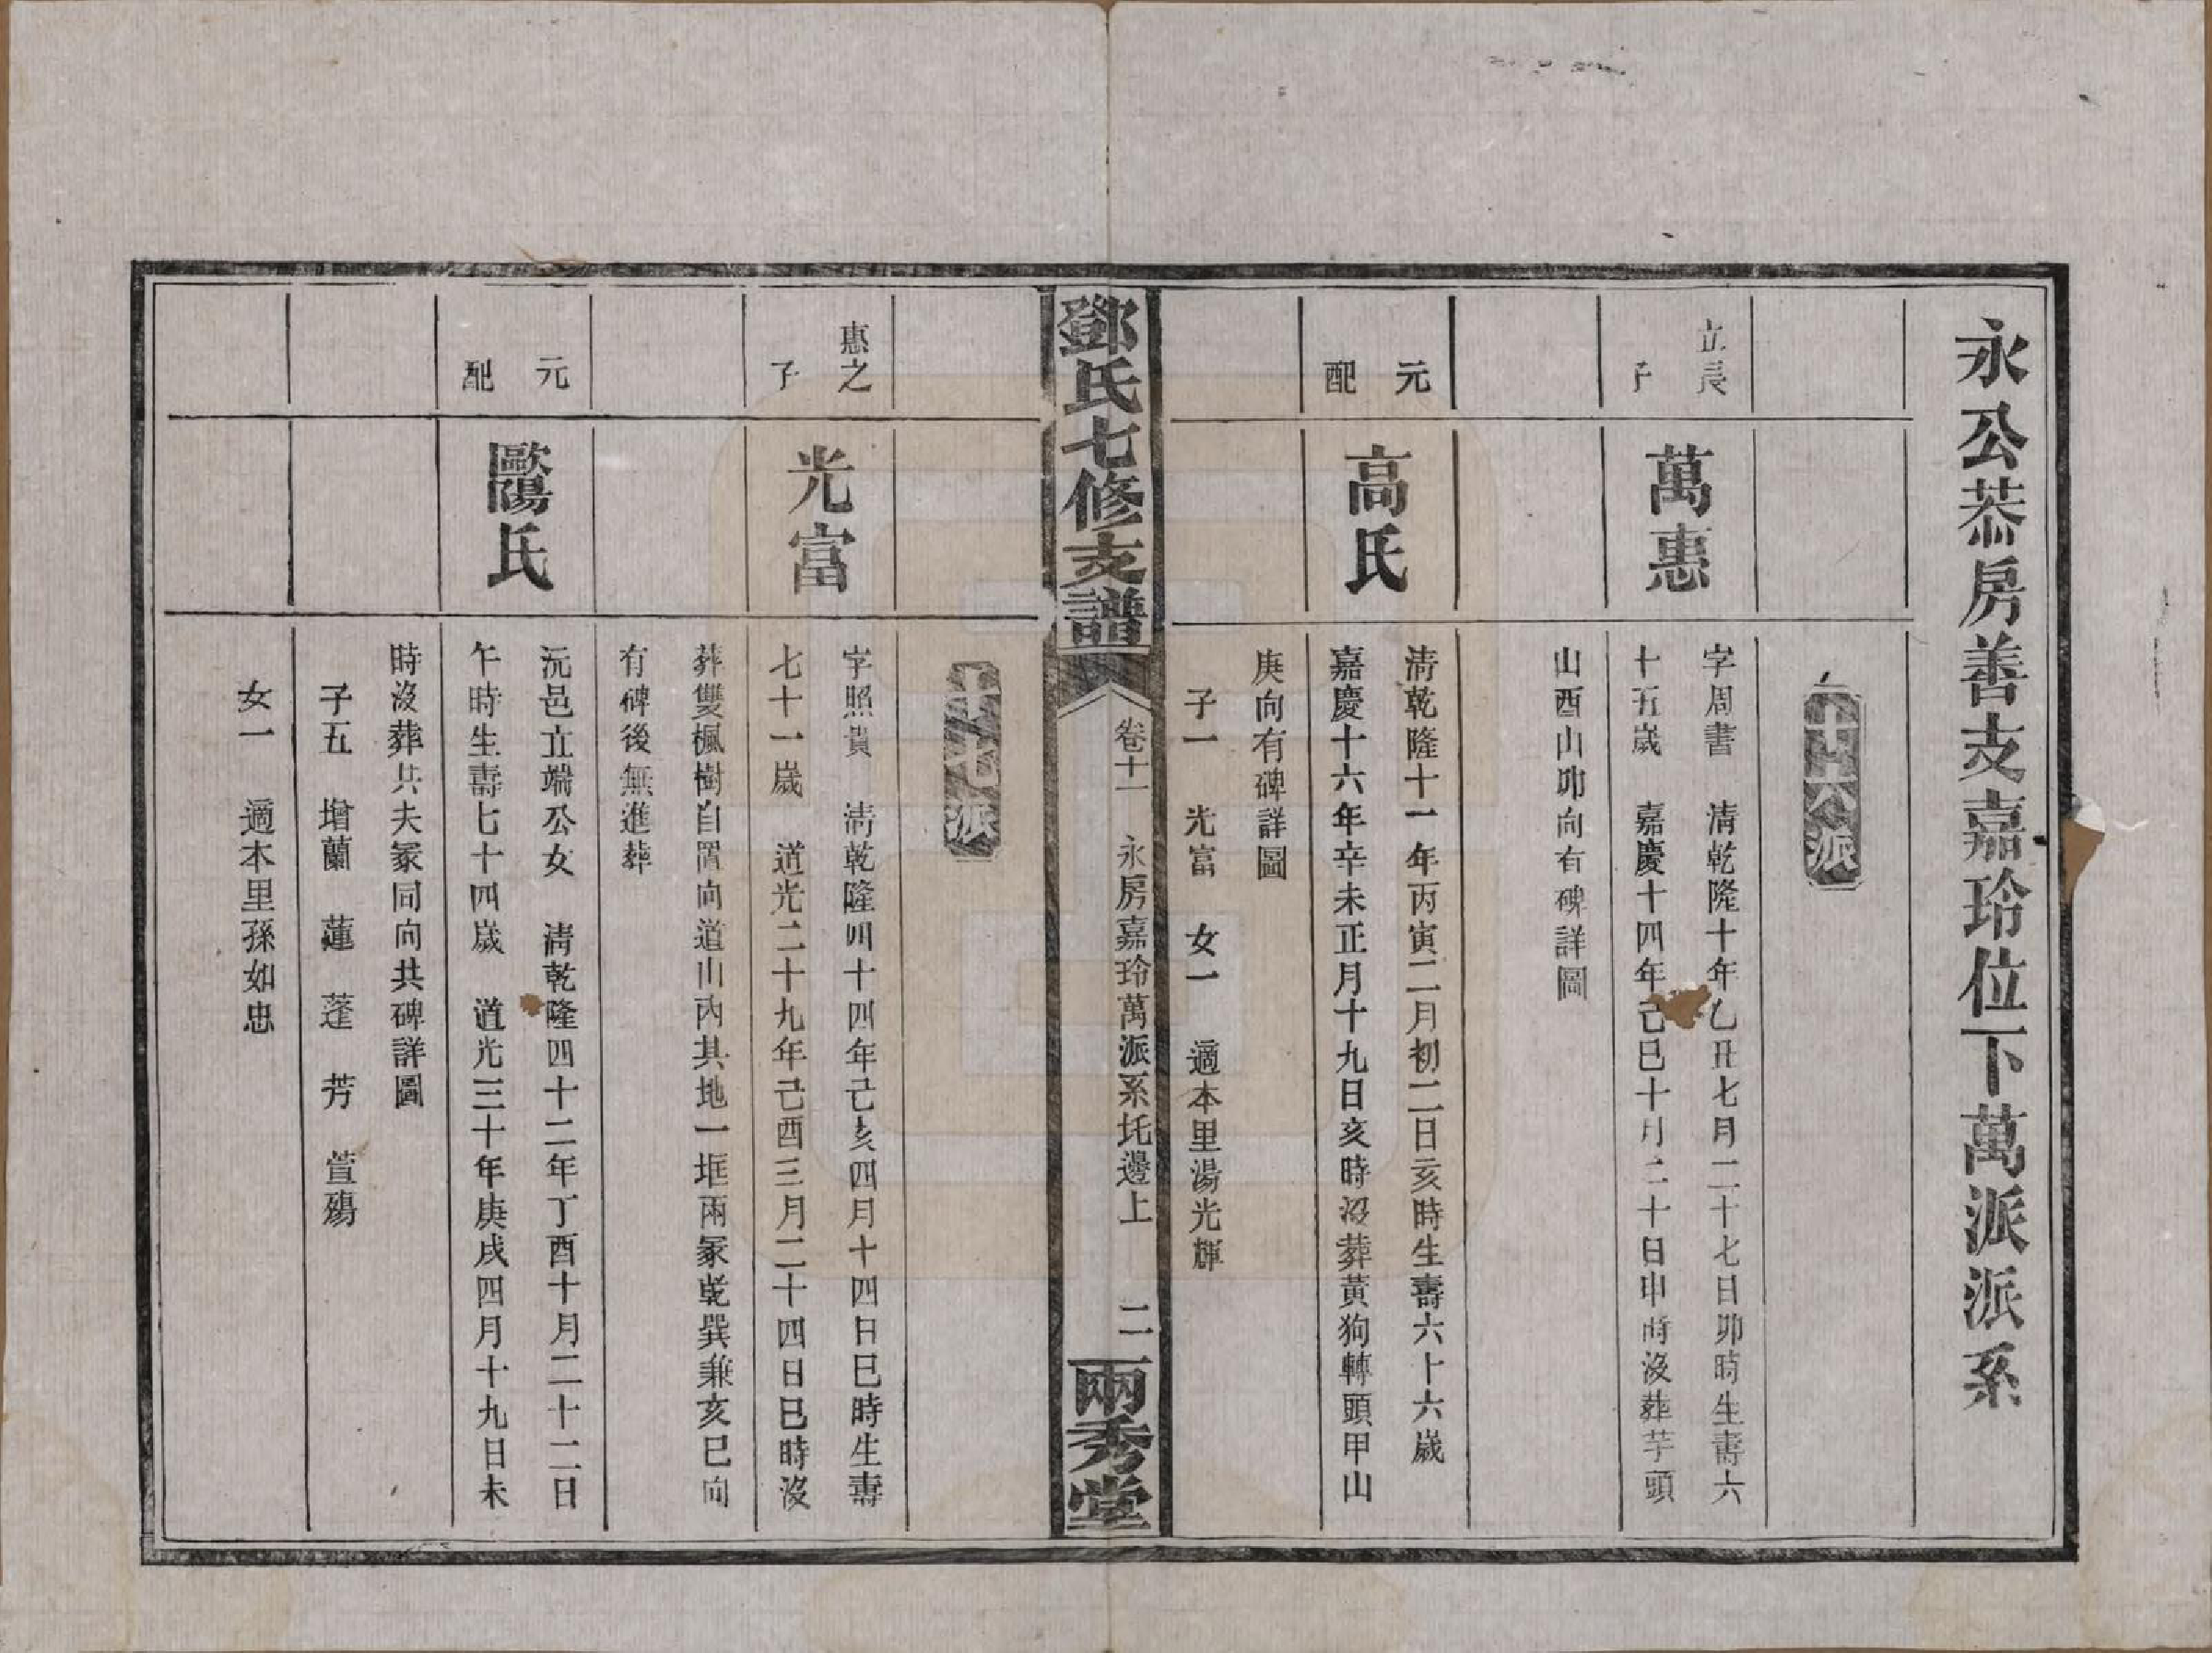 永公恭房善支嘉玲位下萬派派系
十六派
立長子
萬惠
字周書 清乾隆十年乙丑七月二十七日卯時生壽六
十五歲 嘉慶十四年己巳十月二十日申時沒葬芋頭
山酉山卯向有碑詳圖
元配
高氏
清乾隆十一年丙寅二月初二日亥時生壽六十六歲
嘉慶十六年辛未正月十九日亥時沒葬黃狗轉頭甲山
庚向有碑詳圖
子一 光富 女一 適本里湯光輝
鄧氏七修支譜 卷十一 永房嘉玲萬派系圫邊上 二 兩秀堂
十七派
惠之子
光富
字照貴 清乾隆四十四年己亥四月十四日巳時生壽
七十一歲 道光二十九年己酉三月二十四日巳時沒
葬雙楓樹自置向道山內其地一堆兩冢乾巽兼亥巳向
有碑後無進葬
元配
歐陽氏
沅邑立端公女 清乾隆四十二年丁酉十月二十二日
午時生壽七十四歲 道光三十年庚戌四月十九日未
時沒葬共夫冢同向共碑詳圖
子五 增蘭 蓮 蓬 芳 萱殤
女一 適本里孫如忠